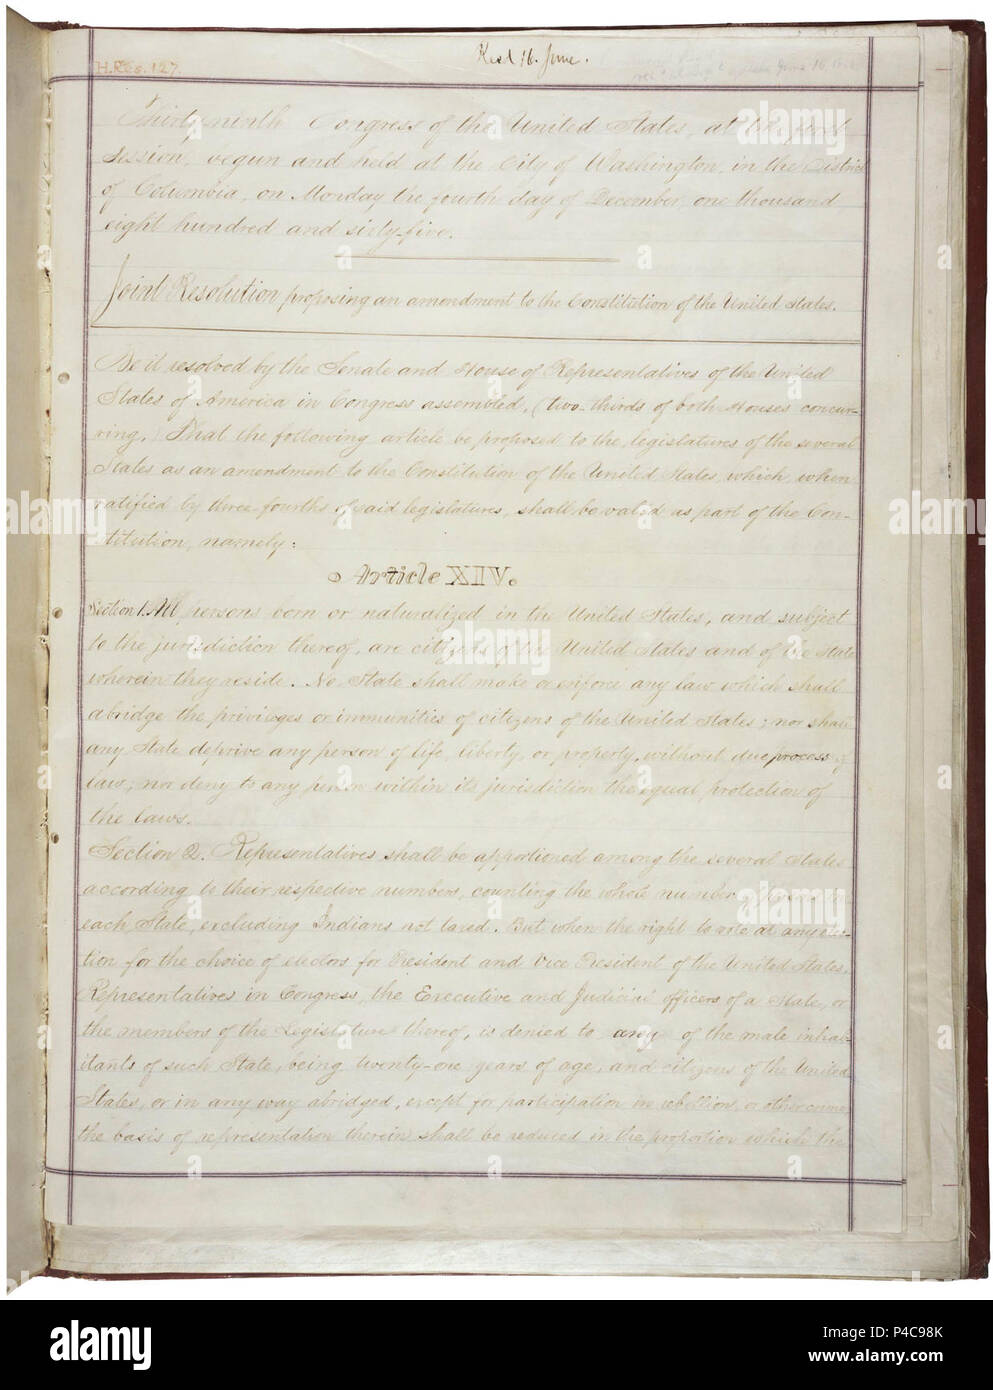 H.Res.127.
Recd 16. June.
Thirty-ninth Congress of the United States, at the first
Session, begun and held at the City of Washington, in the District
of Columbia, on Monday the fourth day of December, one thousand
eight hundred and sixty-five.
Joint Resolution proposing an amendment to the Constitution of the United States.
Be it resolved by the Senate and House of Representatives of the United
States of America in Congress assembled, (two-thirds of both Houses concur-
ring,) That the following article be proposed to the legislatures of the several
States as an amendment to the Constitution of the United States, which, when
ratified by three-fourths of said legislatures, shall be valid as part of the Con-
stitution, namely:
Article XIV.
Section 1. All persons born or naturalized in the United States, and subject
to the jurisdiction thereof, are citizens of the United States and of the State
wherein they reside. No State shall make or enforce any law which shall
abridge the privileges or immunities of citizens of the United States; nor shall
any State deprive any person of life, liberty, or property, without due process of
law; nor deny to any person within its jurisdiction the equal protection of
the laws.
Section 2. Representatives shall be apportioned among the several States
according to their respective numbers, counting the whole number of persons in
each State, excluding Indians not taxed. But when the right to vote at any elec-
tion for the choice of electors for President and Vice President of the United States,
Representatives in Congress, the Executive and Judicial officers of a State, or
the members of the Legislature thereof, is denied to any of the male inhab-
itants of such State, being twenty-one years of age, and citizens of the United
States, or in any way abridged, except for participation in rebellion, or other crime,
the basis of representation therein shall be reduced in the proportion which the
alamy
Image ID: P4C98K
www.alamy.com